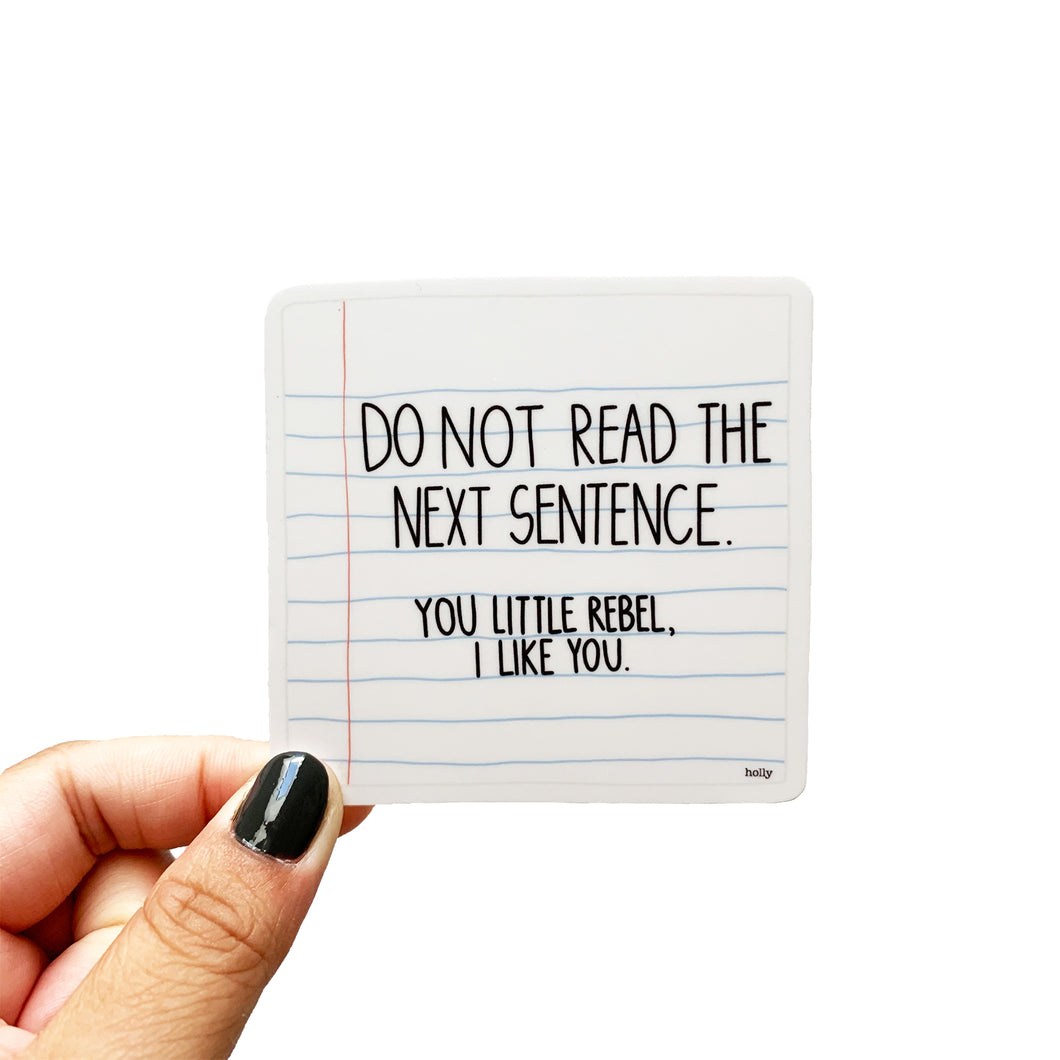 DO NOT READ THE
NEXT SENTENCE.
YOU LITTLE REBEL,
I LIKE YOU.
holly